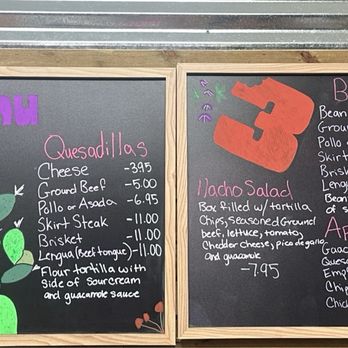 nu
Quesadillas
Cheese -3.95
Ground Beef -5.00
Pollo or Asada -6.95
Skirt Steak -11.00
Brisket -11.00
Lengua (Beef tongue) -11.00
Flour tortilla with
side of sour cream
and guacamole sauce
3
Nacho Salad
Box filled w/ tortilla
Chips, seasoned Ground
beef, lettuce, tomato,
Chedder cheese, pico de gallo
and guacamole
-7.95
B
Bean
Grou
Pollo
Skirt
Brisk
Leng
Bean
of s
Ap
Guac
Quesa
Emp
Chip
Chic